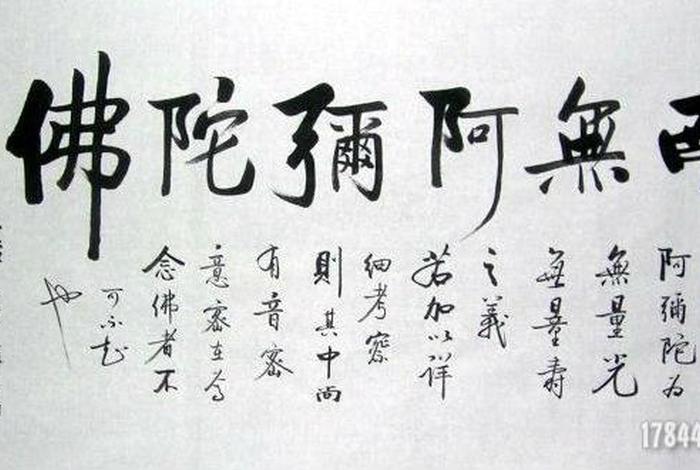 無阿彌陀佛
阿彌陀為
無量光
無量壽
之義
若加以詳
細考察
則其中尚
有音密
意密在為
念佛者不
可不知
也
17844